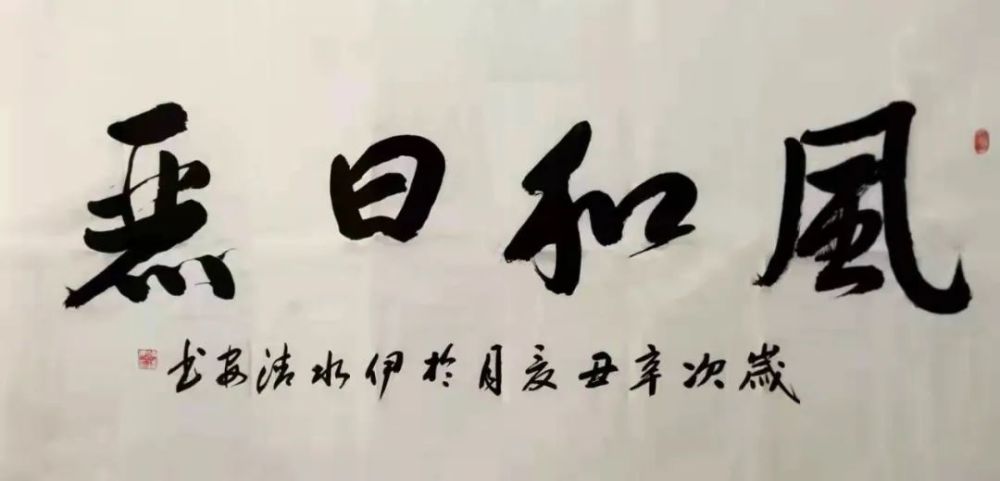 風和日麗
歲次辛丑夏月於伊水清安书